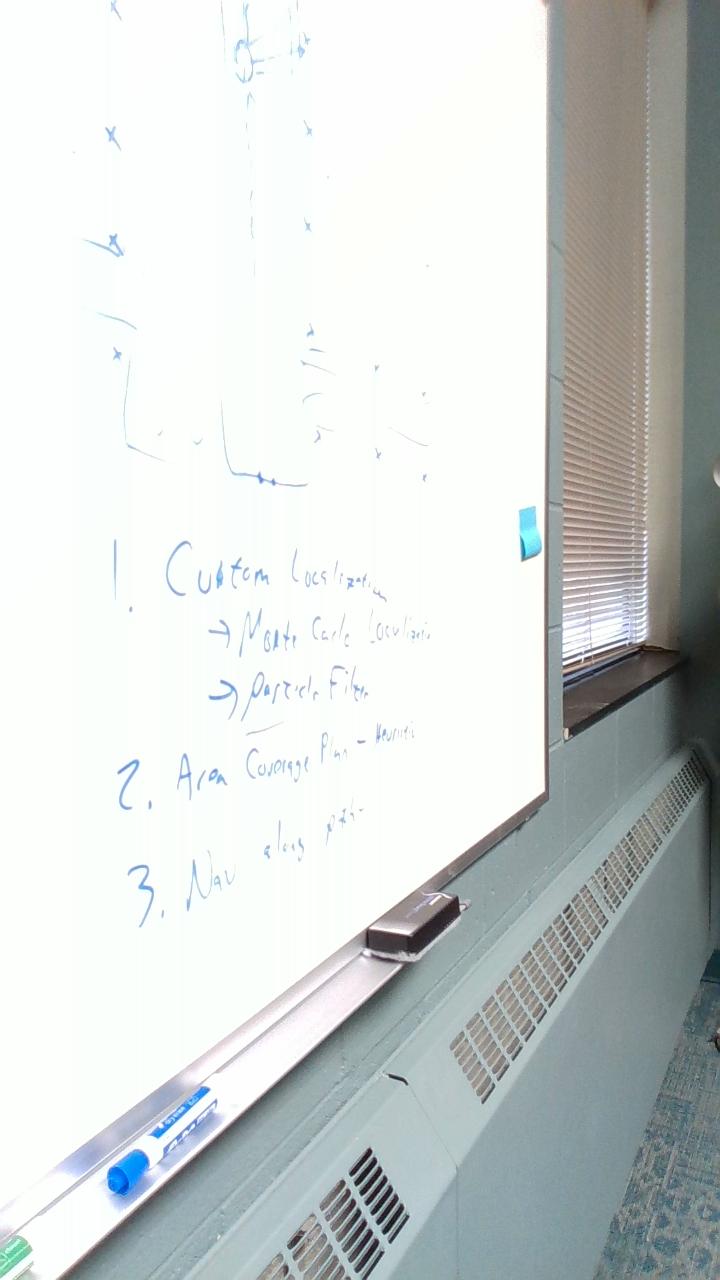 1. Custom Localization
→ Monte Carlo Localization
→ Particle Filter
2. Area Coverage Plan - Heuristic
3. Nav along path
EXPO